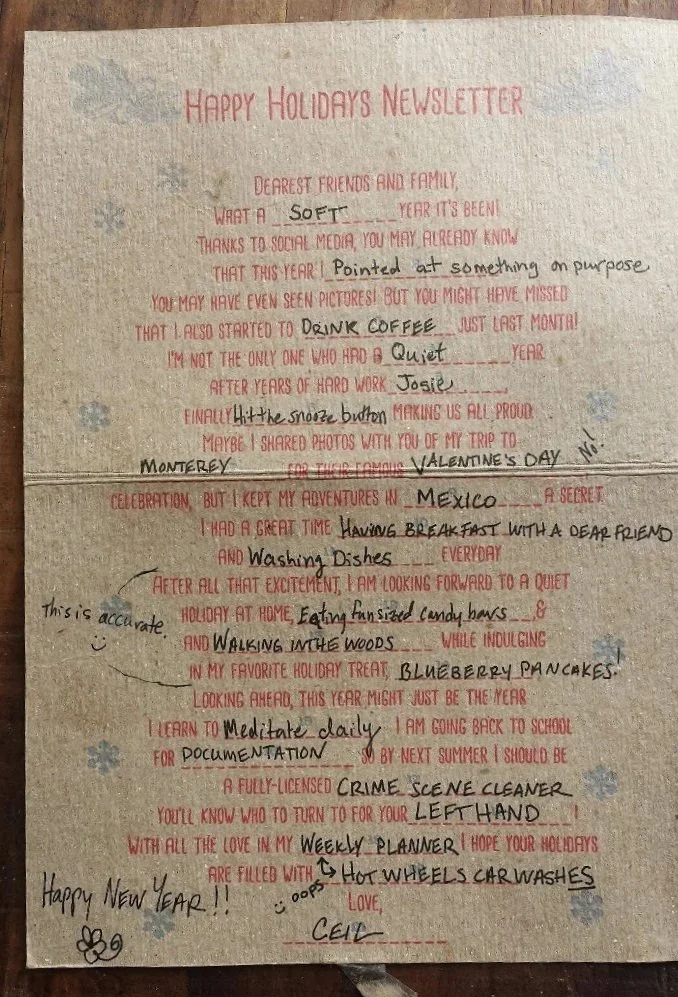 HAPPY HOLIDAYS NEWSLETTER
DEAREST FRIENDS AND FAMILY,
WHAT A SOFT YEAR IT'S BEEN!
THANKS TO SOCIAL MEDIA, YOU MAY ALREADY KNOW
THAT THIS YEAR I Pointed at something on purpose
YOU MAY HAVE EVEN SEEN PICTURES! BUT YOU MIGHT HAVE MISSED
THAT I ALSO STARTED TO DRINK COFFEE JUST LAST MONTH!
I'M NOT THE ONLY ONE WHO HAD A Quiet YEAR
AFTER YEARS OF HARD WORK Josie,
FINALLY Hit the snooze button MAKING US ALL PROUD
MAYBE I SHARED PHOTOS WITH YOU OF MY TRIP TO
MONTEREY FOR THEIR FAMOUS VALENTINE'S DAY No!
CELEBRATION, BUT I KEPT MY ADVENTURES IN MEXICO A SECRET
I HAD A GREAT TIME HAVING BREAKFAST WITH A DEAR FRIEND
AND Washing Dishes EVERYDAY
AFTER ALL THAT EXCITEMENT, I AM LOOKING FORWARD TO A QUIET
This is accurate.
HOLIDAY AT HOME, Eating fun sized candy bars, &
AND WALKING IN THE WOODS WHILE INDULGING
IN MY FAVORITE HOLIDAY TREAT, BLUEBERRY PANCAKES!
LOOKING AHEAD, THIS YEAR MIGHT JUST BE THE YEAR
I LEARN TO Meditate daily I AM GOING BACK TO SCHOOL
FOR DOCUMENTATION SO BY NEXT SUMMER I SHOULD BE
A FULLY-LICENSED CRIME SCENE CLEANER
YOU'LL KNOW WHO TO TURN TO FOR YOUR LEFT HAND!
WITH ALL THE LOVE IN MY WEEKLY PLANNER I HOPE YOUR HOLIDAYS
ARE FILLED WITH HOT WHEELS CAR WASHES
OOPS
LOVE,
CEIL
Happy NEW YEAR!!